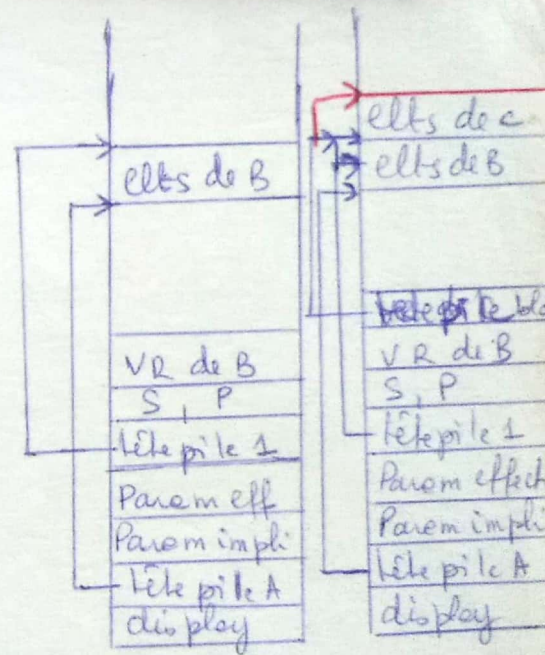 elts de B
VR de B
S, P
tête pile 1
Param eff
Param impli
tête pile A
display
elts de c
elts de B
VR de B
S, P
tête pile 1
Param effect
Param impli
tête pile A
display